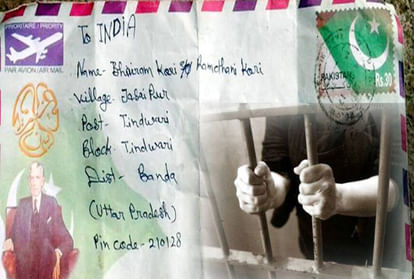 PRIORITAIRE / PRIORITY
PAR AVION/AIR MAIL
To INDIA
Name- Bhairam Kori S/o Ramothani Kori
Village- Jasaipur
Post- Tindwari
Block- Tindwari
Dist- Banda
(Uttar Pradesh)
Pin code- 210128
PAKISTAN
Rs.30